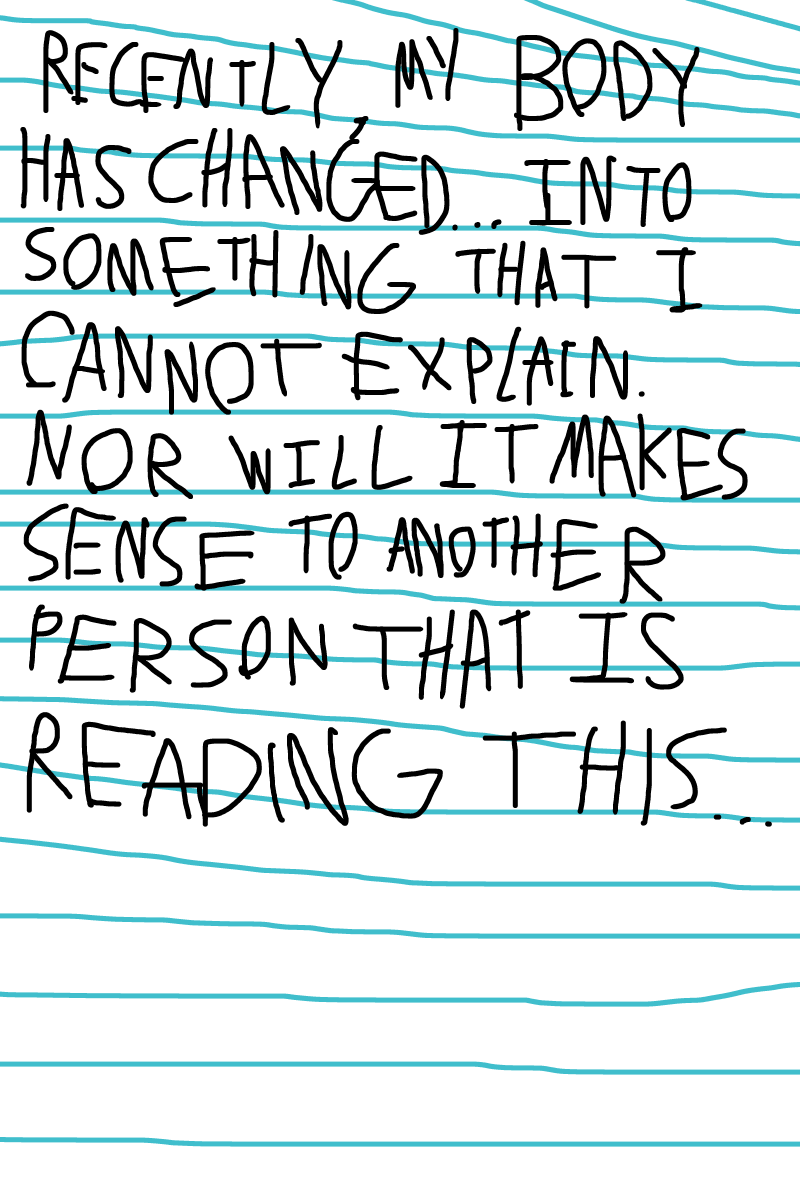 RECENTLY MY BODY
HAS CHANGED... INTO
SOMETHING THAT I
CANNOT EXPLAIN.
NOR WILL IT MAKES
SENSE TO ANOTHER
PERSON THAT IS
READING THIS...